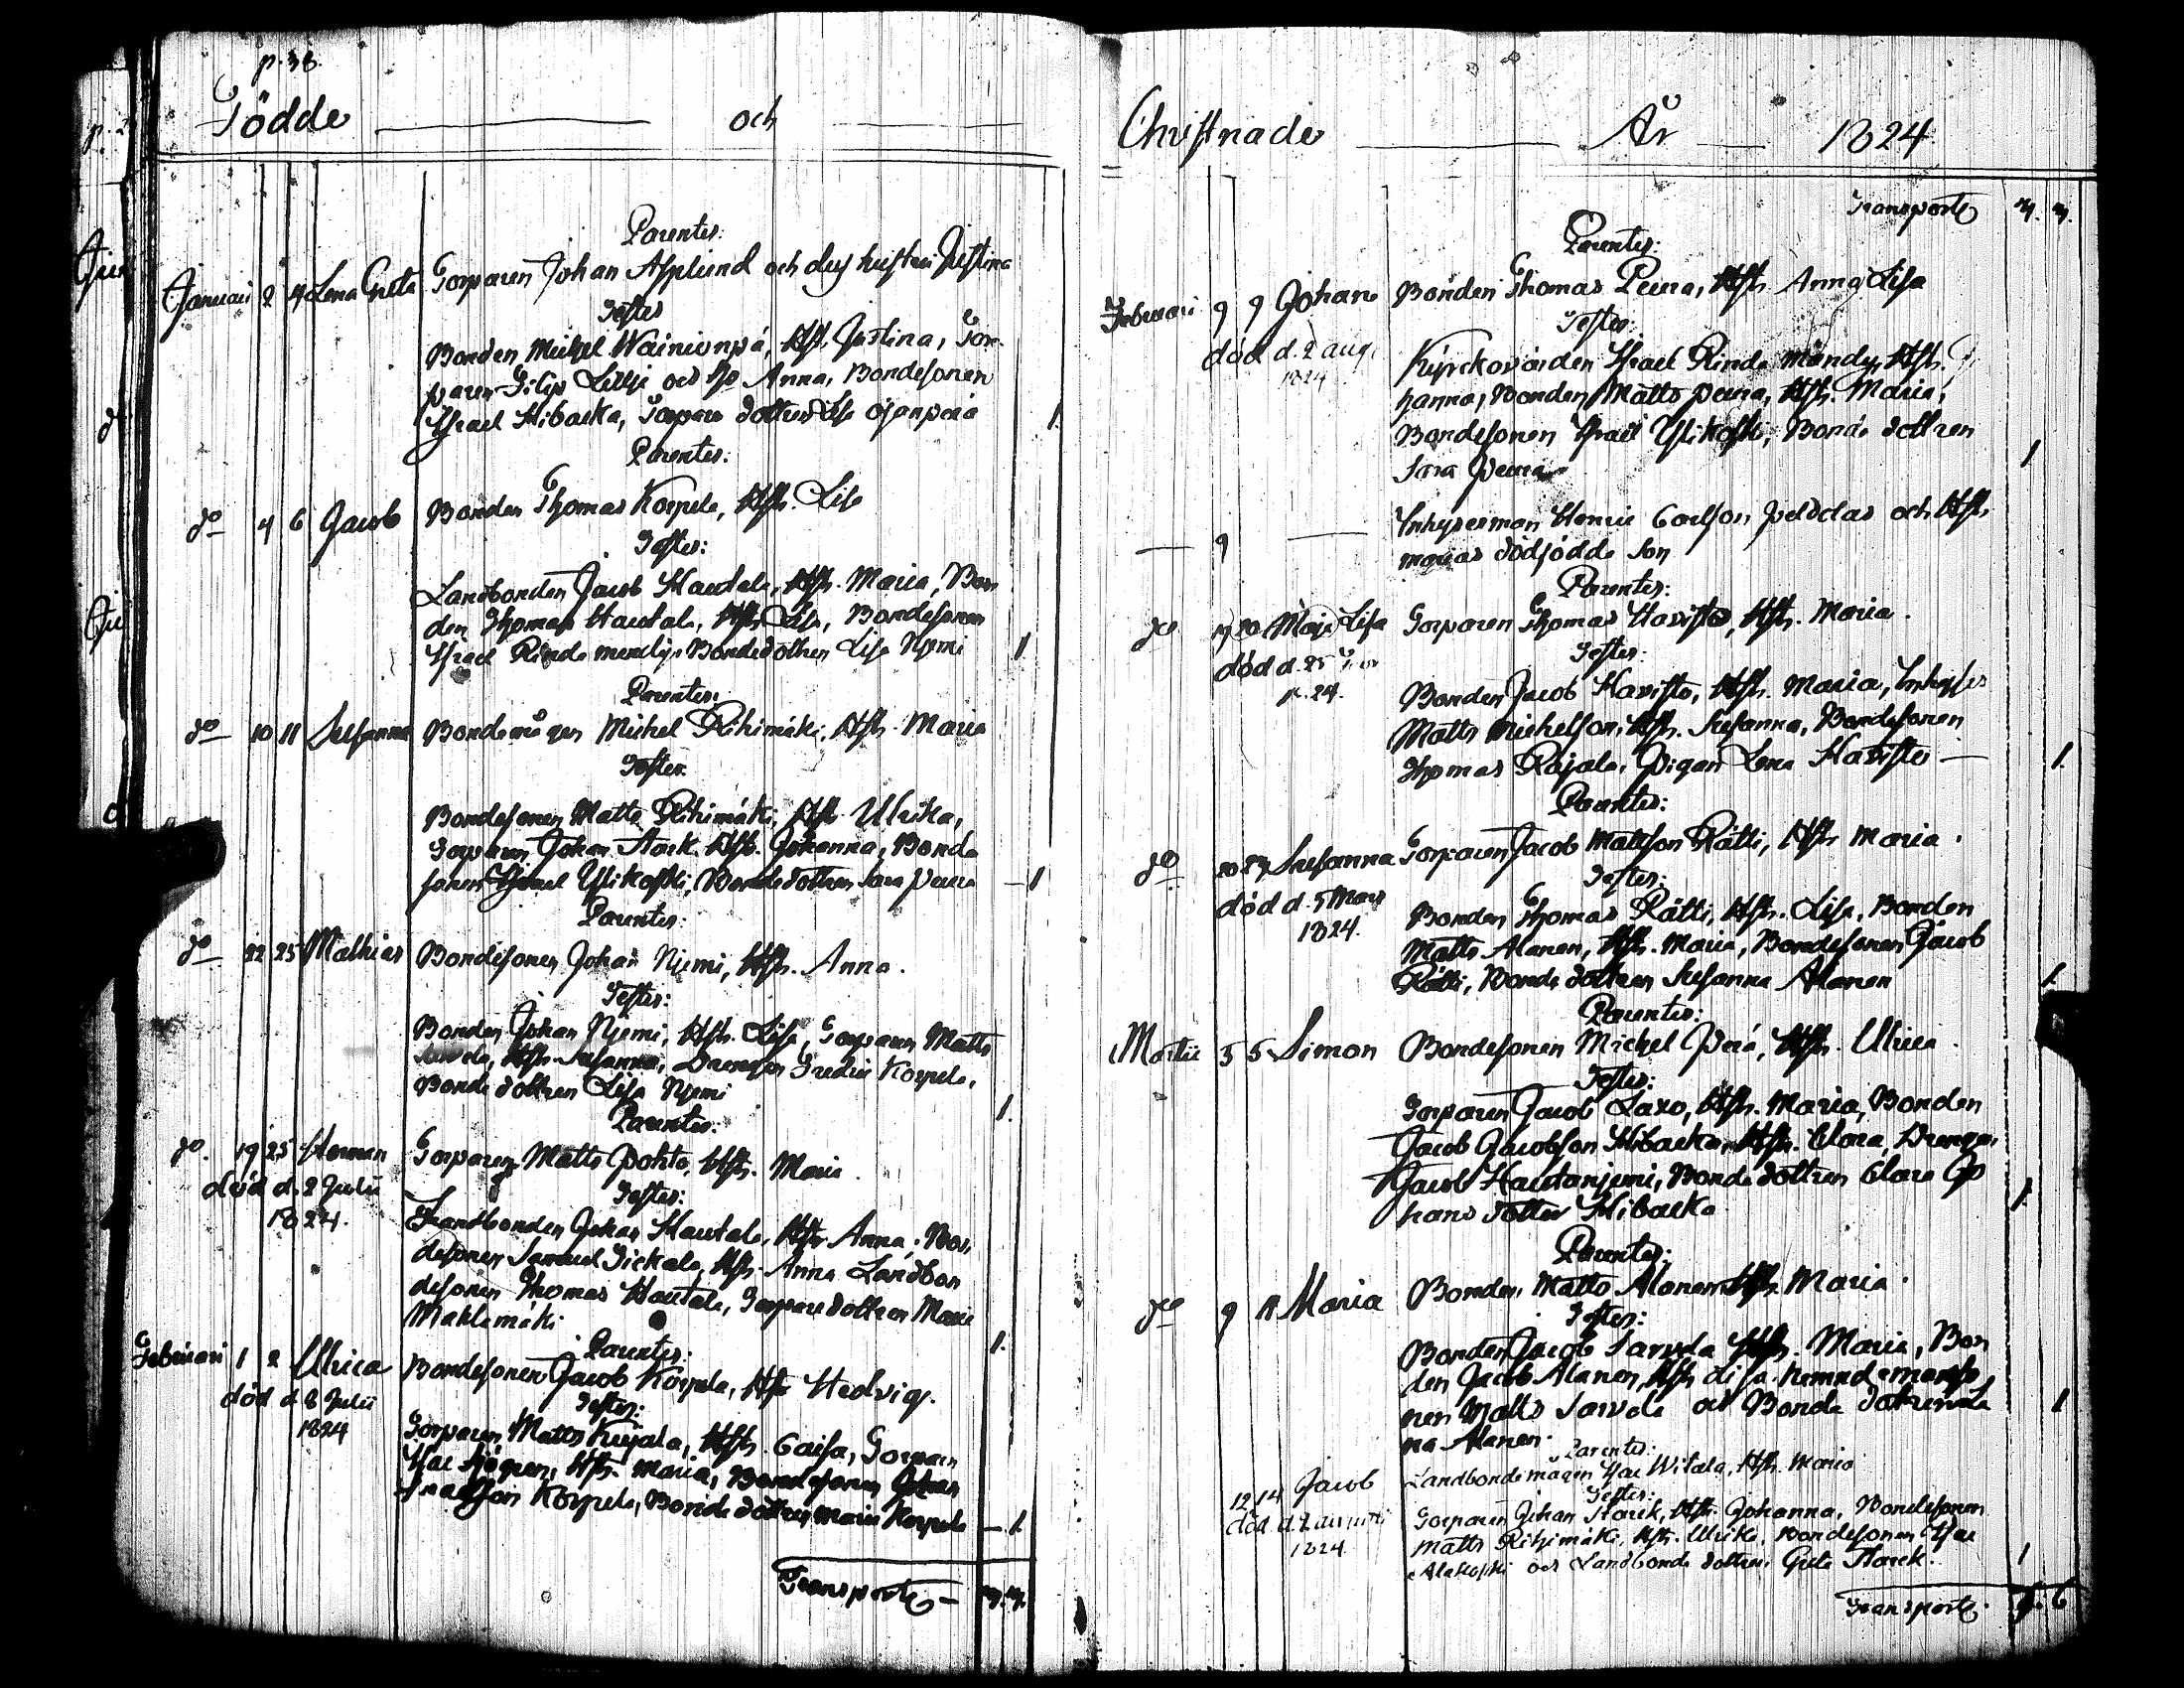 p. 38.
Födde och
Parentes:
Januari 2 4 Lena Greta Torparen Johan Asplund och dess hustru Justina
Testes
Bonden Michel Wainionpä, Hstr. Justina, Tor-
paren Filip Lillje och Anna, Bondesonen
Israel Kibacka, Torpare dottren Lisa Ojanperä 1.
Parentes:
do 4 6 Jacob Bonden Thomas Korpela, Hstr. Lisa
Testes:
Landbonden Jacob Hautala, Hstr. Maria, Bon
den Thomas Hautala, Hstr. Lisa, Bondesonen
Israel Rinda Bondedottren Lisa Njemi 1
Parentes:
do 10 11 Susanna Bondemågen Michel Rihimäki, Hstr. Maria
Testes
Bondesonen Matts Rihimäki, Hstr. Ulrika,
Torparen Johan Stark Hstr. Johanna, Bonde
sonen Israel Ylikoski, Bondedottren Sara Peura — 1
Parentes:
do 22 25 Mathias Bondesonen Johan Njemi, Hstr. Anna.
Testes:
Bonden Johan Njemi, Hstr. Lisa, Torparen Matts
Hstr. Susanna, Drengen Fredric Korpela,
Bonde dottren Lisa Njemi 1.
Parentes:
do. 19 25 Herman Torparen Matts Pohto, Hstr. Maria.
död d. 2 Julii Testes:
1824. Landbonden Johan Hautala, Hstr. Anna, Bon
desonen Samuel Sickala, Hstr. Anna Landbon
desonen Thomas Hautala, Torpare dottren Maria
Maklamäki 1.
Parentes:
Februari 1 2 Ulrica Bondesonen Jacob Korpela, Hstr. Hedvig.
död d 8 Julii Testes:
1824 Torparen Matts Kujala, Hstr. Caisa, Torparen
Isac Hstr. Maria, Bondesonen Johan
Korpela, Bonde dottren Maria Korpela — 1.
Transport —
Christnade År 1824.
Transport
Parentes:
Februari 9 9 Johan Bonden Thomas Peura, Hstr. Anna Lisa
Testes:
död d. 2 aug. Kyrckovärden Israel Rinda Hstr.
1824 hanna, Bonden Matts Peura, Hstr. Maria,
Bondesonen Israel Ylikoski, Bonde dottren
Sara Peura 1
— 9 — Inhysesman Henric Carlsson och Hstr.
Marias dödfödde Son
Parentes:
do 20 Maja Lisa Torparen Thomas Havisto, Hstr. Maria.
död d. 25 Testes:
24. Bonden Jacob Havisto, Hstr. Maria, Inhyses
Matts Michelson, Hstr. Susanna, Bondesonen
Thomas Rajala, Pigan Lena Havisto — 1.
Parentes:
do 20 27 Susanna Torparen Jacob Mattsson Rätti, Hstr Maria.
Testes:
död d. 5 Mars Bonden Thomas Rätti, Hstr. Lisa, Bonden
1824. Matts Alanen, Hstr. Maria, Bondesonen Jacob
Rätti, Bonde dottren Susanna Alanen 1.
Parentes:
Martii 5 5 Simon Bondesonen Michel Perä, Hstr. Ulrica.
Testes:
Torparen Jacob Laxo, Hstr. Maria, Bonden
Jacob Jacobsson Kibacka, Hstr. Clara, Drengen
Jacob Hautanjemi, Bonde dottren Clara Jo
hans dotter Kibacka 1.
Parentes:
do 9 11 Maria Bonden Matts Alanen Hstr. Maria.
Testes:
Bonden Jacob Sarvela Hstr. Maria, Bon
den Jacob Alanen, Hstr Lisa,
nen Matts Sarvela och Bonde dottren Le 1
na Alanen.
Parentes:
12 14 Jacob Landbondemågen Isac Witala, Hstr. Maria
Testes:
död d. 2 Torparen Johan Starck, Hstr. Johanna, Bondesonen
1824. Matts Rihimäki, Hstr. Ulrika, Bondesonen Isac
Alakoski och Landbonde dottren Greta Starck. 1
Transport. 7. 6